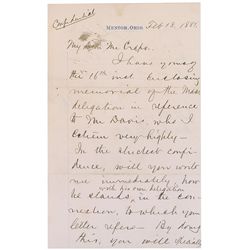 Confidential
MENTOR, OHIO. Feb 18, 1881.
My dear Mr Crapo.
I have yours of
the 16th inst enclosing
memorial of the Mass
delegation in reference
to Mr Davis, who I
esteem very highly—
In the strictest confi-
dence, will you write
me immediately, how
with his own delegation
he stands, in the con-
nection, to which your
letter refers— By doing
this, you will greatly